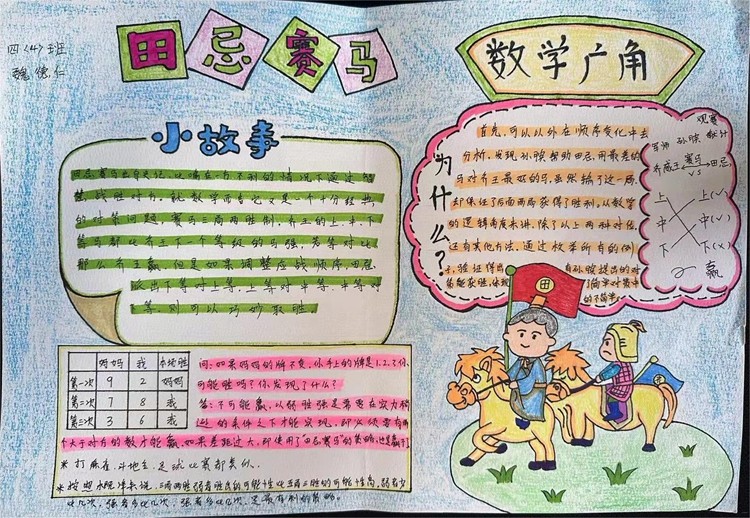 四(4)班
魏德仁
田忌赛马
小故事
田忌赛马出自史记，比喻在一方不利的情况下通过智
慧，战胜对方。就数学而言它又是一个十分经典
的对策问题，赛马三局两胜制，齐王的上、中、下
等马都比齐王下一个等级的马强，若等对比
那么齐王赢，但是如果调整应战顺序田忌
派出下等对上等，上等对中等，中等对
下等，则可以巧妙取胜
妈妈 我 本场胜
第一次 9 2 妈妈
第二次 7 8 我
第三次 3 6 我
问：如果妈妈的牌不变，你手上的牌是1.2.3你
可能胜吗？你发现了什么？
答：不可能赢，以弱胜强是需要在实力相
近的条件之下才能实现，即必须要有两
个大于对方的数才能赢，如果差距过大，即使用了"田忌赛马"的策略，也是赢不了
*打麻在、斗地主、足球比赛都类似。
数学广角
为什么？
首先，可以从外在顺序变化中去
分析，发现孙膑帮助田忌，用最差的
马对齐王最好的马，虽然输了这一局，
却保证了后面两局获得了胜利，从数学
的逻辑角度来讲，除了以上两种对任
还有其他方法，通过枚举所有的例
子，验证得出 有孙膑提出的对
策能获胜，体现 了简单对策中
的不简单。
观赛
军师 孙膑 献计
齐威王 赛马 田忌
VS
上 上(√)
中 中(√)
下 下(×)
赢
田